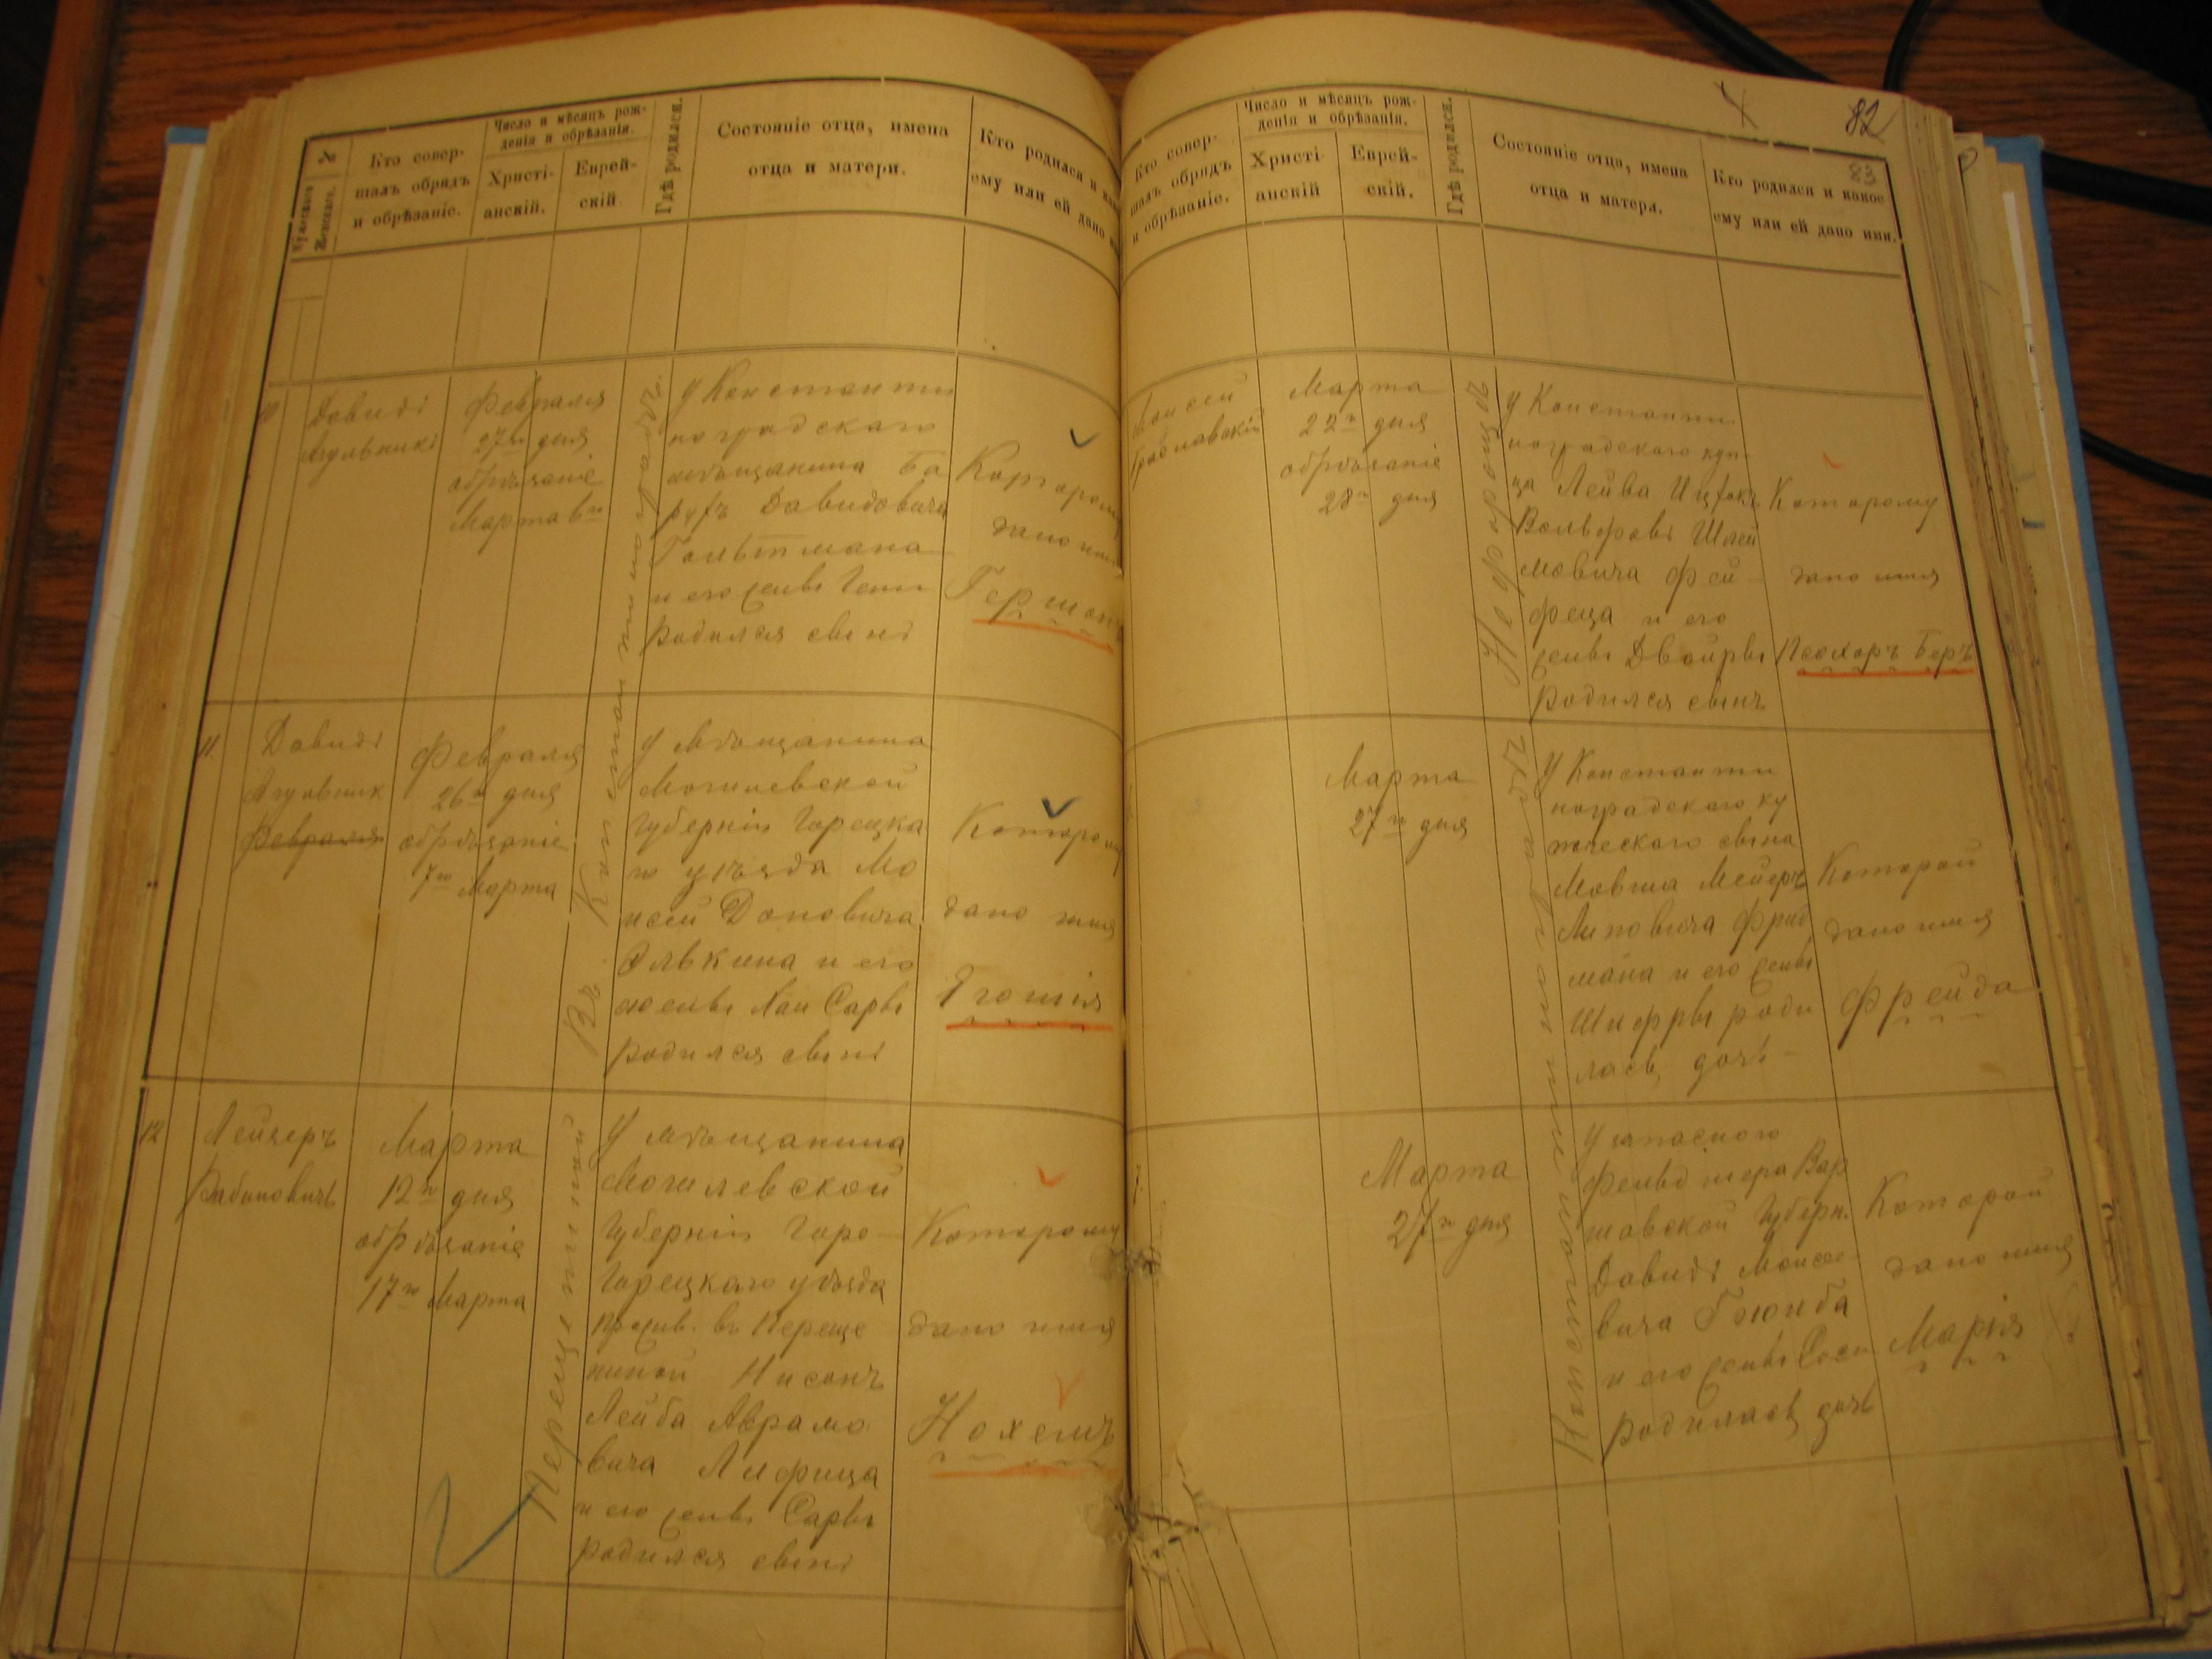 Мужескаго
Женскаго.
№
Кто совер-
шалъ обрядъ
и обрѣзаніе.
Число и мѣсяцъ рож-
денія и обрѣзанія.
Христі-
анскій.
Еврей-
скій.
Гдѣ родился.
Состояніе отца, имена
отца и матери.
Кто родился и как
ему или ей дано и
10
Давидъ
Февраля
27го дня
обрѣзаніе
Марта 6го
У Константи
ноградскаго
мѣщанина Ба
рухъ Давидовича
Гольтмана
и его жены Гени
родился сынъ
Которому
дано имя
Гершон
11
Давидъ
Февраля
Февраля
26го дня
обрѣзаніе
7го Марта
Въ Константиноградѣ.
У мѣщанина
Могилевской
Губерніи Горецка
го уѣзда Мо
исей Доновича
Элькина и его
жены Хаи Сары
родился сынъ
Которому
дано имя
12
Лейзеръ
Рабиновичъ
Марта
12го дня
обрѣзаніе
17го Марта
У мѣщанина
Могилевской
Губерніи Горе-
Горецкаго уѣзда
прожив. въ Переще
пиной Нисонъ
Лейба Аврамо
вича Лифица
и его жены Сары
родился сынъ
Которому
дано имя
Нохемъ
82
83
Кто совер-
шалъ обрядъ
и обрѣзаніе.
Число и мѣсяцъ рож-
денія и обрѣзанія.
Христі-
анскій
Еврей-
скій.
Гдѣ родился.
Состояніе отца, имена
отца и матери.
Кто родился и какое
ему или ей дано имя.
Моисей
Марта
22го дня
обрѣзаніе
28го дня
У Константи
ноградскаго куп-
ца Лейва Ицхокъ
Вольфовъ Шлей
мовича Фей-
феца и его
жены Двойры
родился сынъ
Которому
дано имя
Исохоръ Беръ
Марта
27го дня
У Константи
ноградскаго ку
печескаго сына
Мовша Мейеръ
Липовича Фрид
мана и его жены
Шифры роди
лась дочь
Которой
дано имя
Фрейда
Марта
27го дня
Константиноградѣ
У запаснаго
Фельдшера Вар
шавской Губерн.
Давидъ Моисее-
вича
и его жены Соси
родилась дочь
Которой
дано имя
Марія